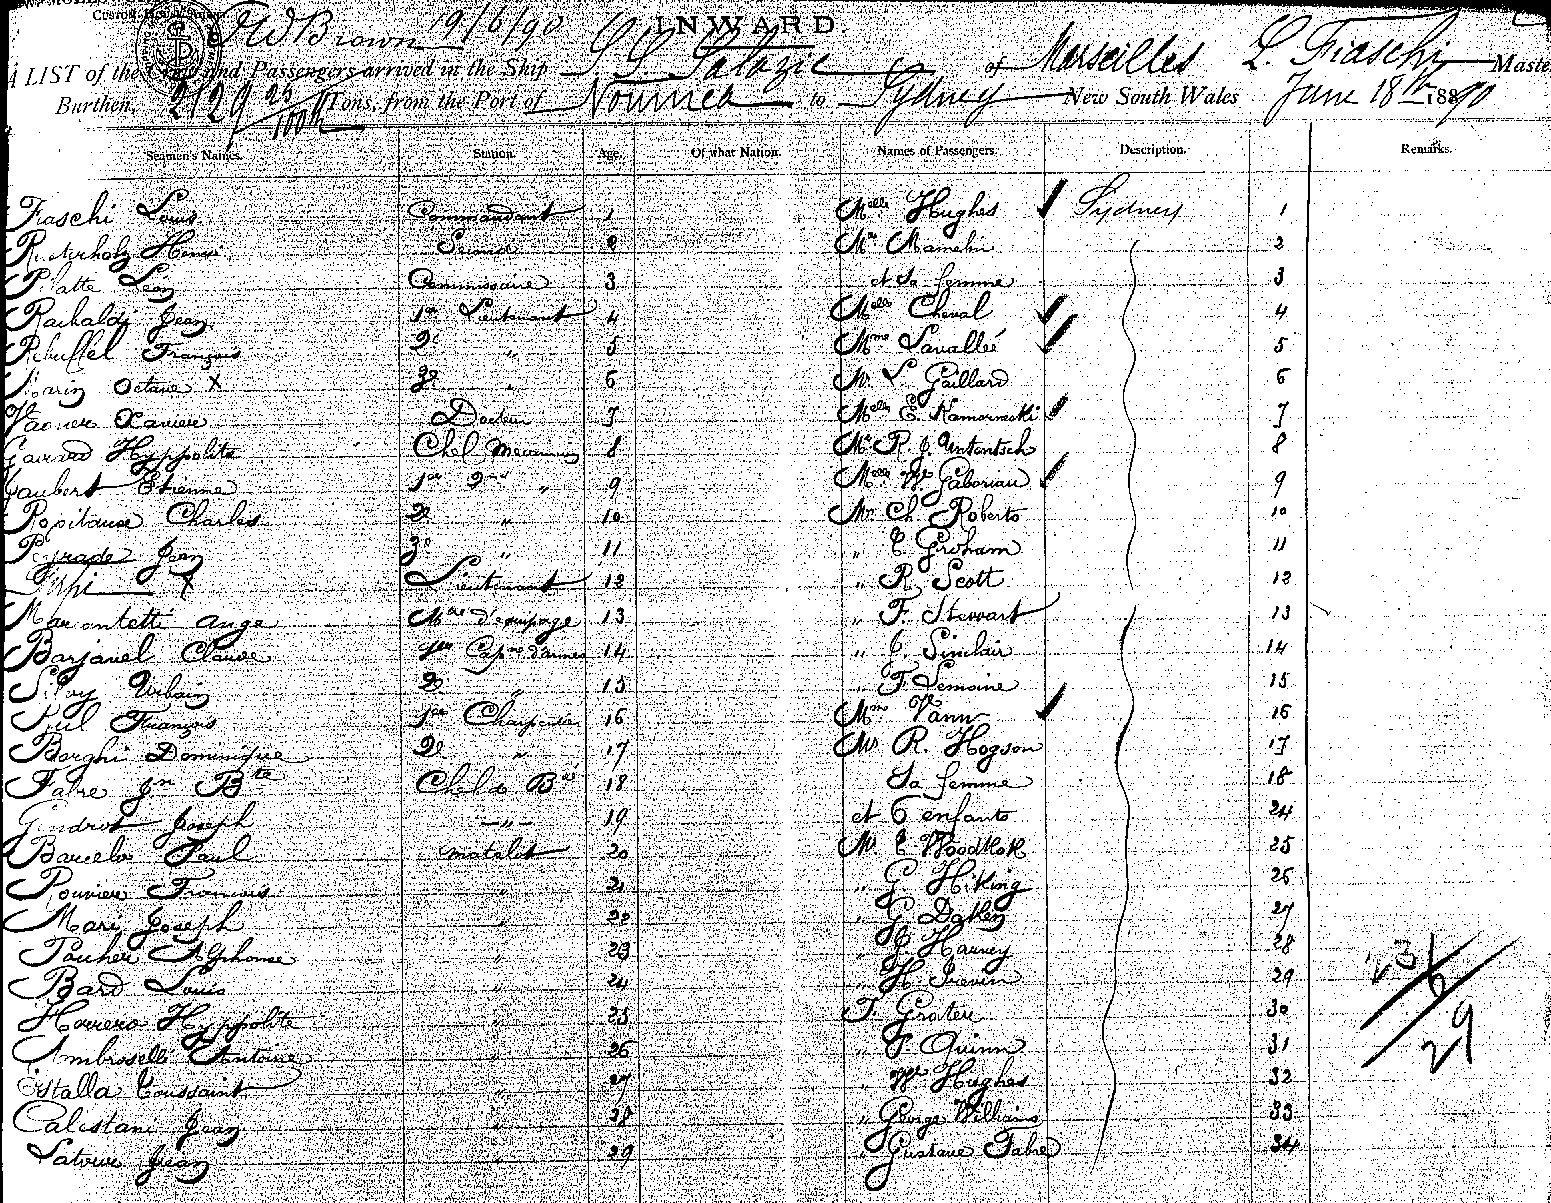 J W Brown 19/6/90 INWARD
A LIST of the Crew and Passengers arrived in the Ship S S Salazie of Marseilles L. Fiaschi Maste
Burthen, 2129 25/100th Tons, from the Port of Noumea to Sydney New South Wales June 18th 1890
Seamen's Names. Station. Age. Of what Nation. Names of Passengers. Description. Remarks.
Fiaschi Louis Commandant 1 Melle Hughes Sydney 1
Henri Second 2 Mr Mamelin 2
Platte Léon Commissaire 3 et Sa femme 3
Jean 1er Lieutenant 4 Melle Cheval 4
Rebuffel François 2e " 5 Mme Lavallée 5
Marin Octave X 3e " 6 Mr L. Gaillard 6
Xavier Docteur 7 Melle E. 7
Hyppolite Chef Mecanicien 8 Mr R. J. 8
Jaubert Etienne 1er 2nd " 9 W. Gaboriau 9
Charles 2e " 10 Mr Ch. Roberto 10
Peyrade Jean 3e " 11 " E Groham 11
X Lieutenant 12 " R. Scott 12
Ange Mtre d'equipage 13 " F. Stewart 13
Barjavel Claude 1er Capne d'armes 14 " J. Sinclair 14
Urbain 2e " 15 " F. Lemoine 15
François 1er Charpentier 16 Mme Vann 16
Borghi Dominique 2e " 17 Mr R. Hogson 17
Fabre Jn Bte Chef de Bée 18 Sa femme 18
Gindrot Joseph " 19 et 6 enfants 24
Barcelo Paul matelot 20 Mr E Woodkok 25
Rouviere Francois " 21 " G Hiking 26
Marin Joseph " 22 " G Daken 27
Alphonse " 23 " E Harvey 28
Bard Louis " 24 " H. 29
Herrero Hyppolite " 25 F. 30
Ambroselli Antoine " 26 " F Quinn 31
Estalla Toussaint " 27 " W Hughes 32
Calistani Jean " 28 " George Williams 33
Latour Jean " 29 " Gustave Fabre 34
23/6
29